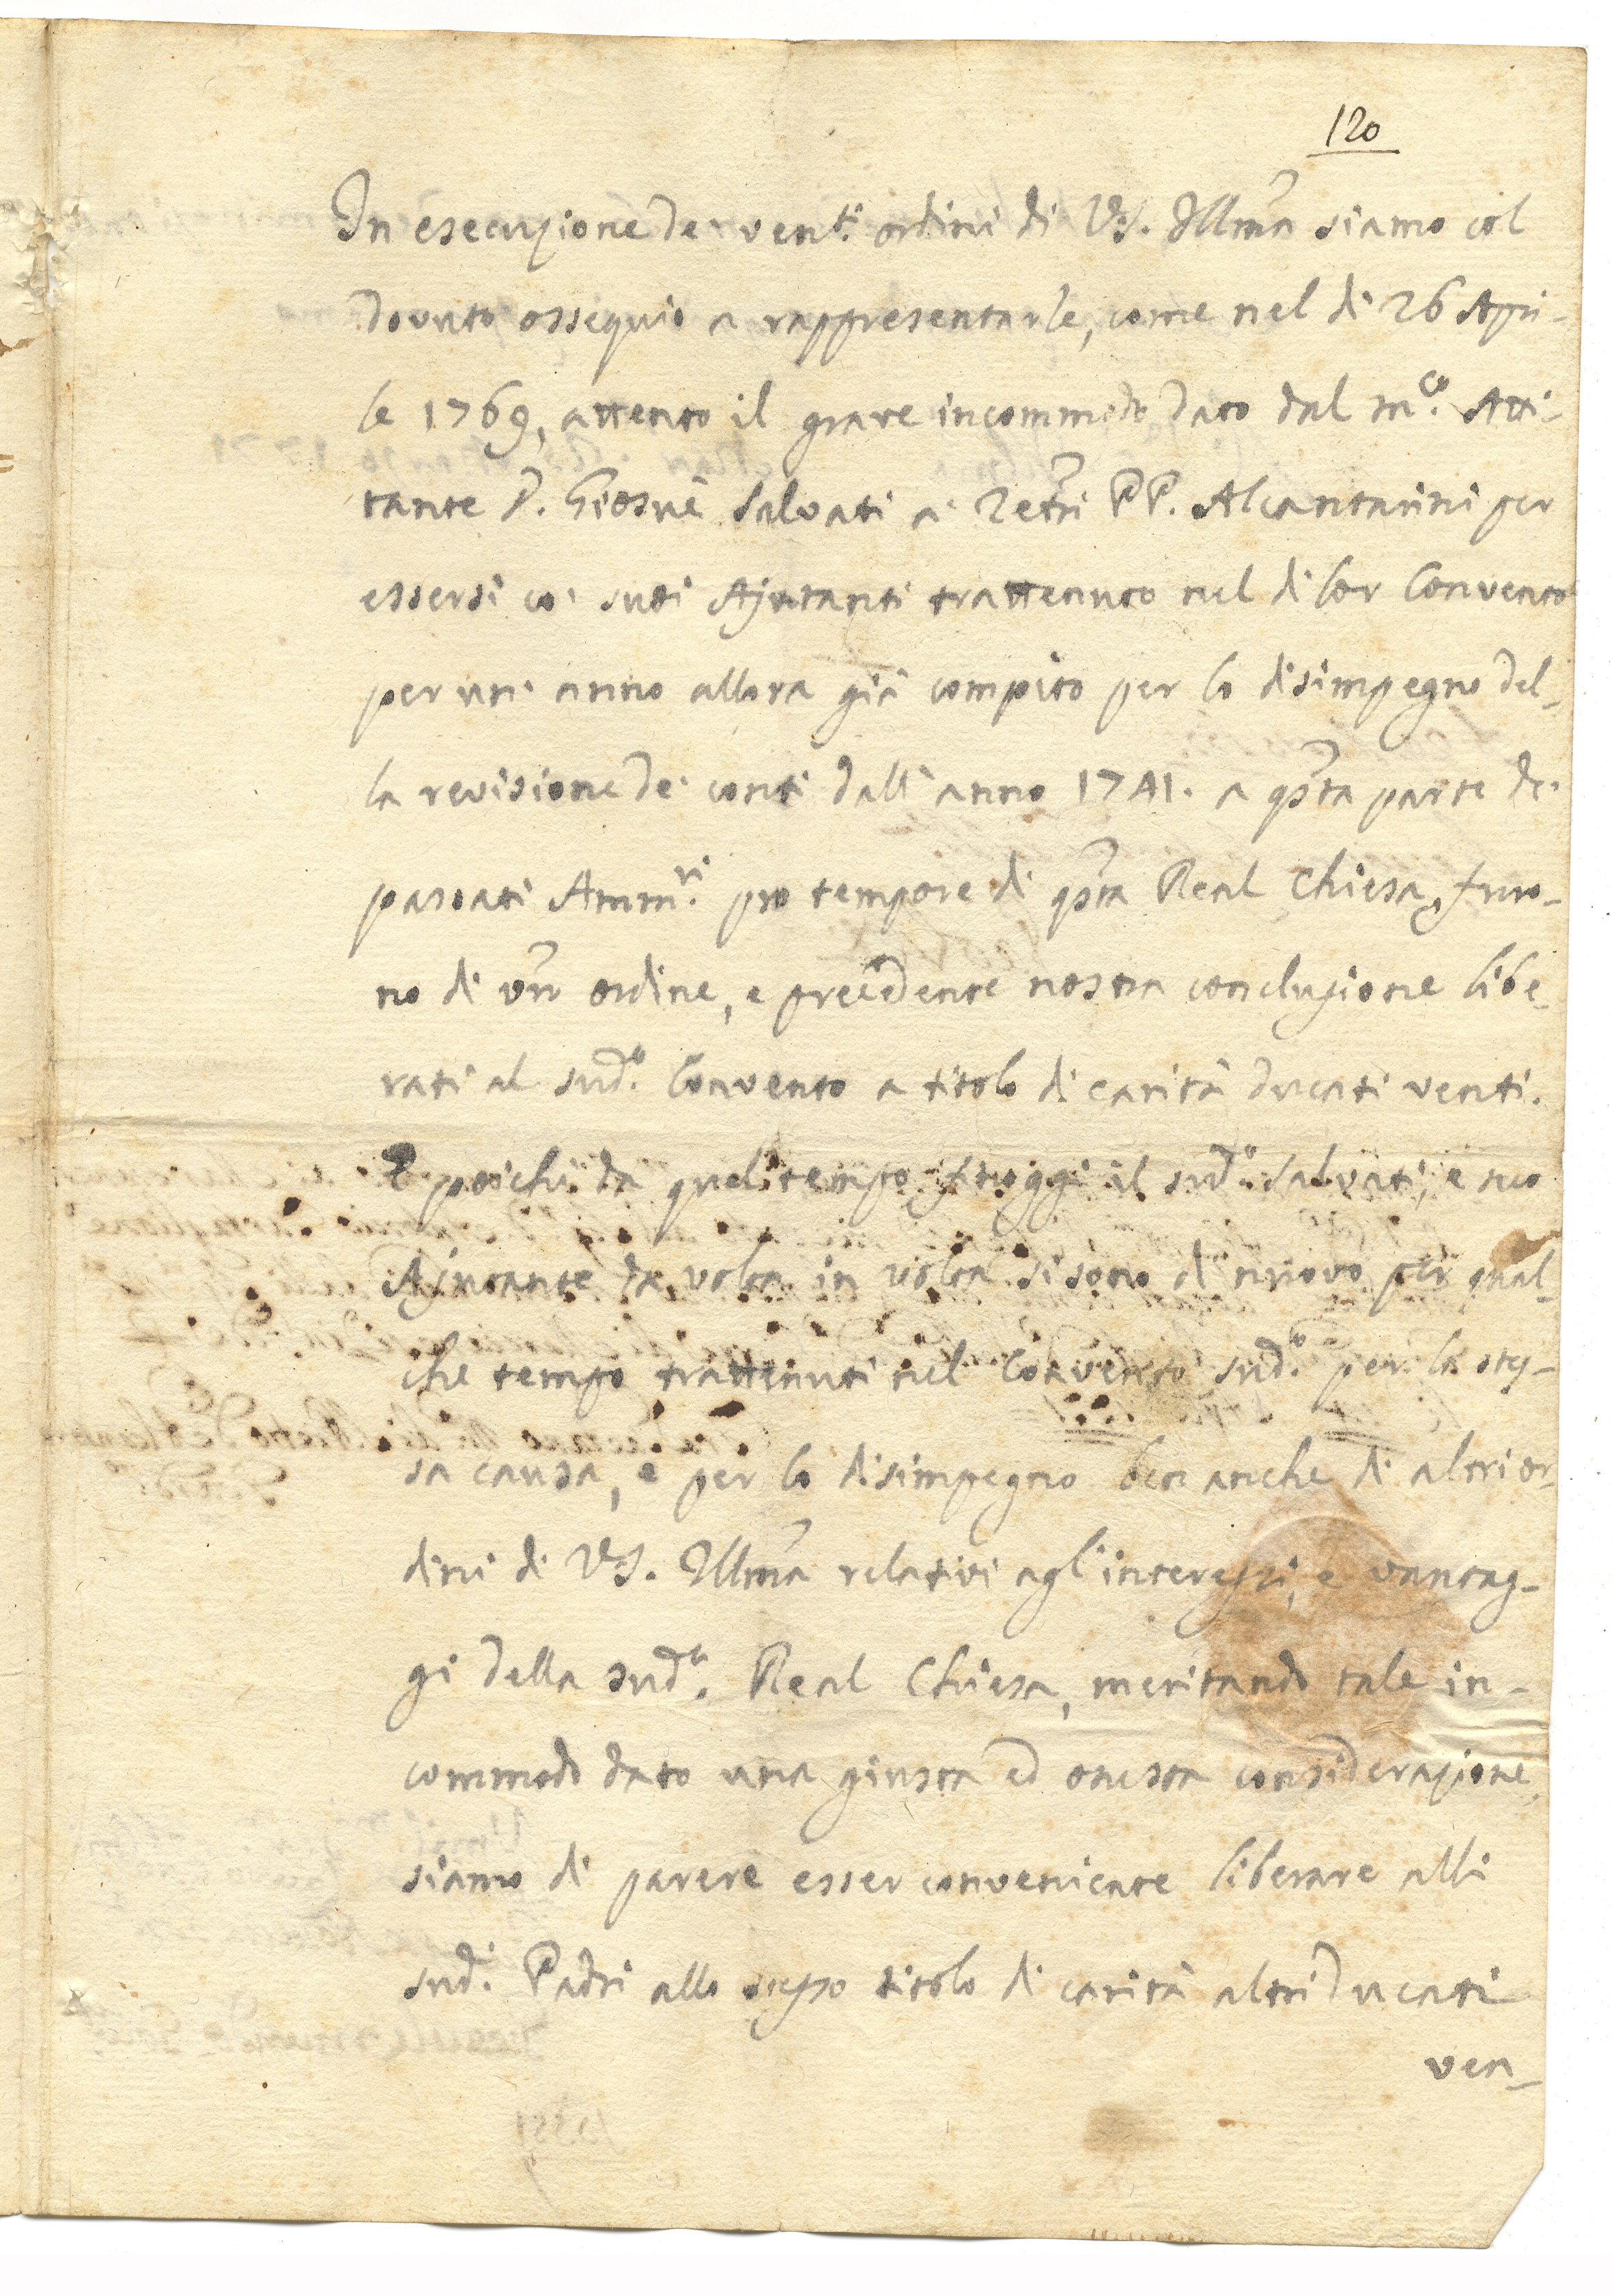 120
In esecuzione de' ven.ti ordini di V.S. Illma siamo col
dovuto ossequio a rappresentarle, come nel dì 26 Apri-
le 1769, attento il grave incommodo dato dal m.co Atti-
tante D. Giosuè Salvati a' Retri PP. Alcantarini per
essersi co' suoi Ajutanti trattenuto nel di lor Convento
per un' anno allora già compito per lo disimpegno del-
la revisione de' conti dall' anno 1741. a qsta parte de'
passati Amm.ri pro tempore di qsta Real Chiesa, furo-
no di vrn ordine, e precedente nostra conclusione libe-
rati al sud.o Convento a titolo di carità ducati venti.
E poichè da quel tempo fin oggi il sud.o Salvati, e suo
Ajutante da volta in volta si sono di nuovo per qual-
che tempo trattenuti nel Convento sud.o per la stes-
sa causa, e per lo disimpegno ben anche di altri or-
dini di V.S. Illma relativi agl' interessi, e vantag-
gi della sud.a Real Chiesa, meritando tale in-
commodo dato una giusta ed onesta considerazione,
siamo di parere esser conveniente liberare alli
sud.i Padri allo stesso titolo di carità altri ducati
ven-